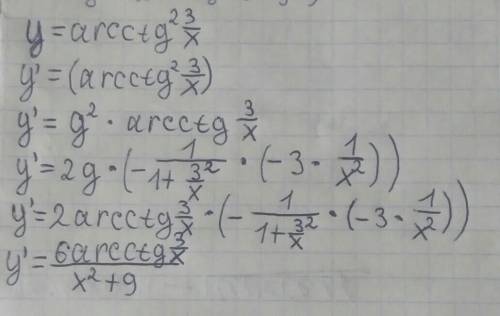 y = arcctg² 3/x
y' = (arcctg² 3/x)
y' = g² · arcctg 3/x
y' = 2g · (- 1/(1+ 3²/x) · (-3 · 1/x²))
y' = 2arcctg 3/x · (- 1/(1+ 3²/x) · (-3 · 1/x²))
y' = 6arcctg 3/x / (x²+9)